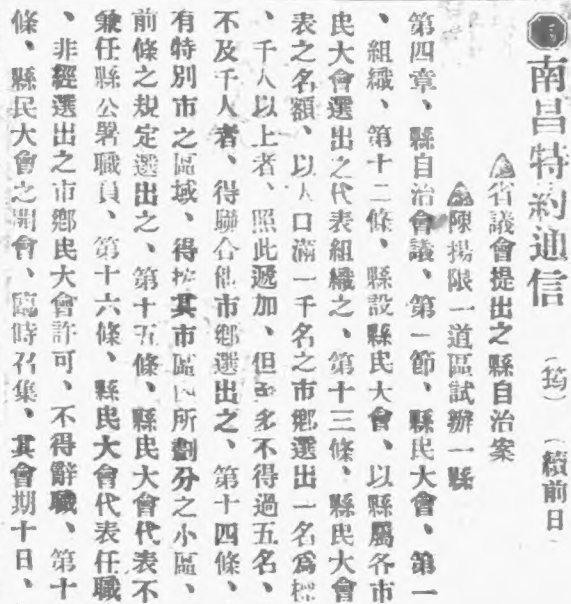 南昌特約通信 (筠) (續前日)
省議會提出之縣自治案
陳揚限一道區試辦一縣
第四章、縣自治會議、第一節、縣民大會、第一
、組織、第十二條、縣設縣民大會、以縣屬各市
民大會選出之代表組織之、第十三條、縣民大會
表之名額、以人口滿一千名之市鄉選出一名爲標
、千人以上者、照此遞加、但至多不得過五名、
不及千人者、得聯合他市鄉選出之、第十四條、
有特別市之區域、得按其市區內所劃分之小區、
前條之規定選出之、第十五條、縣民大會代表不
兼任縣公署職員、第十六條、縣民大會代表任職
、非經選出之市鄉民大會許可、不得辭職、第十
條、縣民大會之開會、臨時召集、其會期十日、